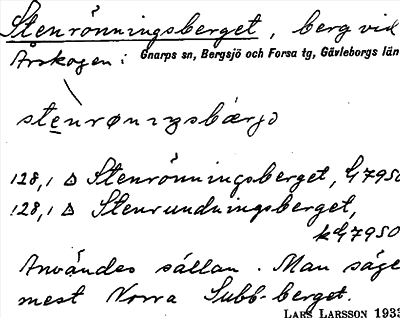 Stenrönningsberget, berg vid
Årskogen: Gnarps sn, Bergsjö och Forsa tg, Gävleborgs län
128,1 △ Stenrönningsberget,
128,1 △ Stenrundningsberget,
Användes sällan. Man säge
mest Norra Subb-berget.
LARS LARSSON 1933